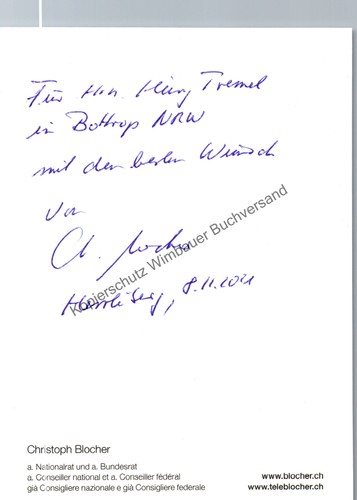 Für Hrn. Heinz Tremel
in Bottrop NRW
mit den besten Wünsch
von
Ch. Blocher
Herrliberg, 8.11.2021
Kopierschutz Wimbauer Buchversand
Christoph Blocher
a. Nationalrat und a. Bundesrat
a. Conseiller national et a. Conseiller fédéral
già Consigliere nazionale e già Consigliere federale
www.blocher.ch
www.teleblocher.ch